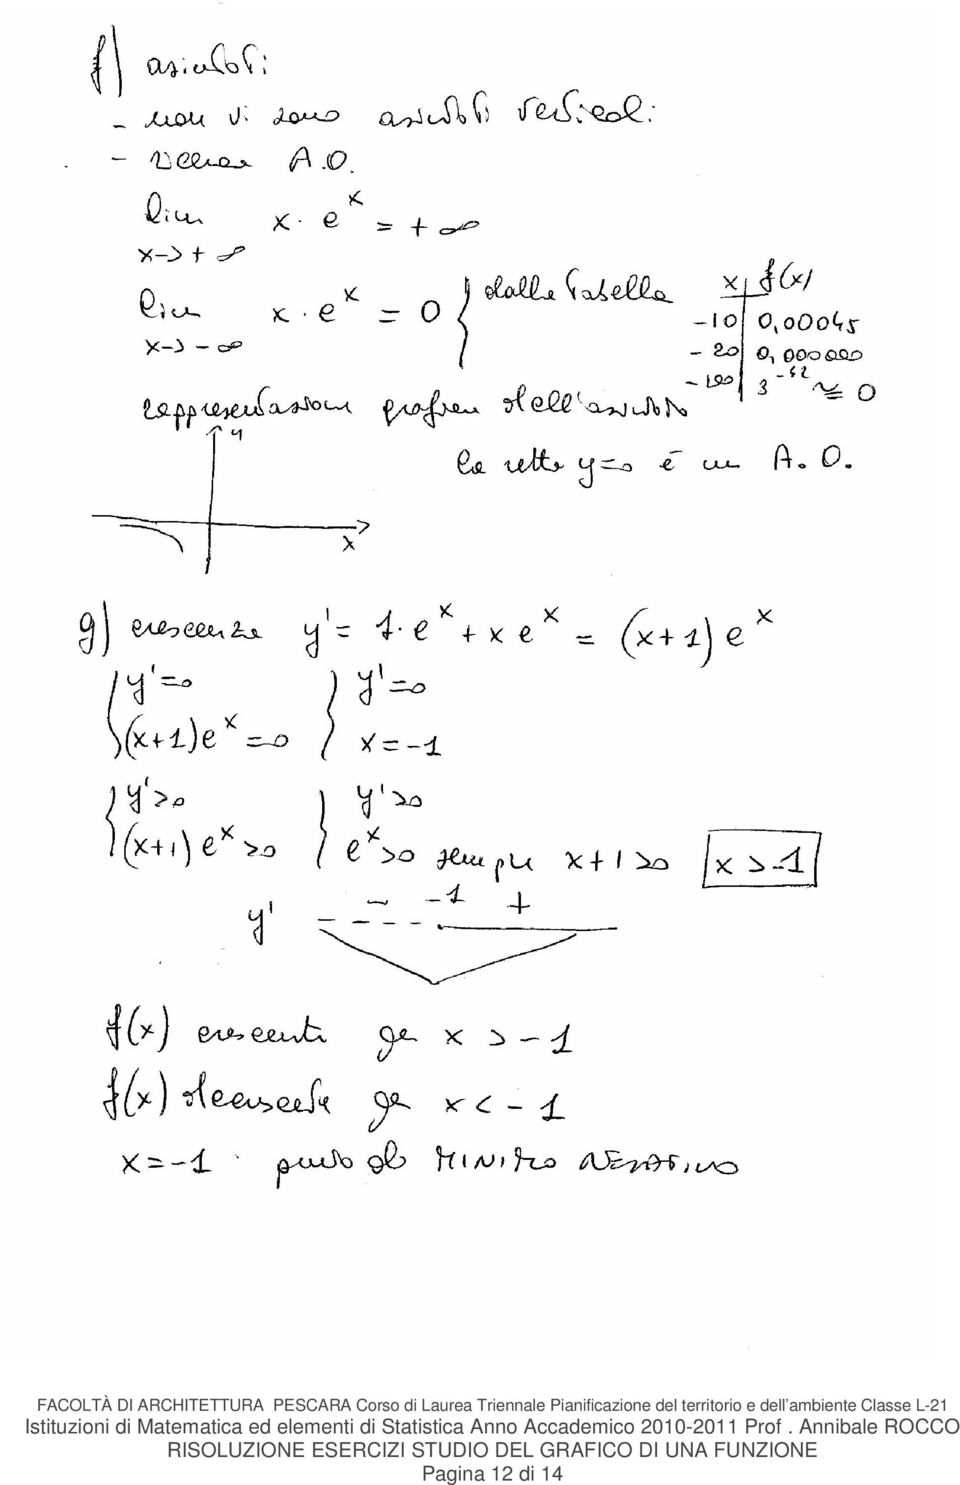 f) asintoti:
- non vi sono asintoti verticali
- ricerca A.O.
lim x→+∞ x·e^x = +∞
lim x→-∞ x·e^x = 0 { dalla tabella
x | f(x)
-10 | 0,00045
-20 | 0,000000
-100 | 3^-42 ≅ 0
rappresentazione grafica dell'asintoto
y
la retta y=0 è un A.O.
x
g) crescenza y'= 1·e^x + x e^x = (x+1) e^x
{ y'=0 { y'=0
(x+1)e^x=0 x=-1
{ y'>0 { y'>0
(x+1) e^x >0 e^x>0 sempre x+1>0 x>-1
- -1 +
y' - - - -
f(x) crescente per x > -1
f(x) decrescente per x < -1
x=-1 punto di MINIMO NEGATIVO
FACOLTÀ DI ARCHITETTURA PESCARA Corso di Laurea Triennale Pianificazione del territorio e dell'ambiente Classe L-21
Istituzioni di Matematica ed elementi di Statistica Anno Accademico 2010-2011 Prof . Annibale ROCCO
RISOLUZIONE ESERCIZI STUDIO DEL GRAFICO DI UNA FUNZIONE
Pagina 12 di 14